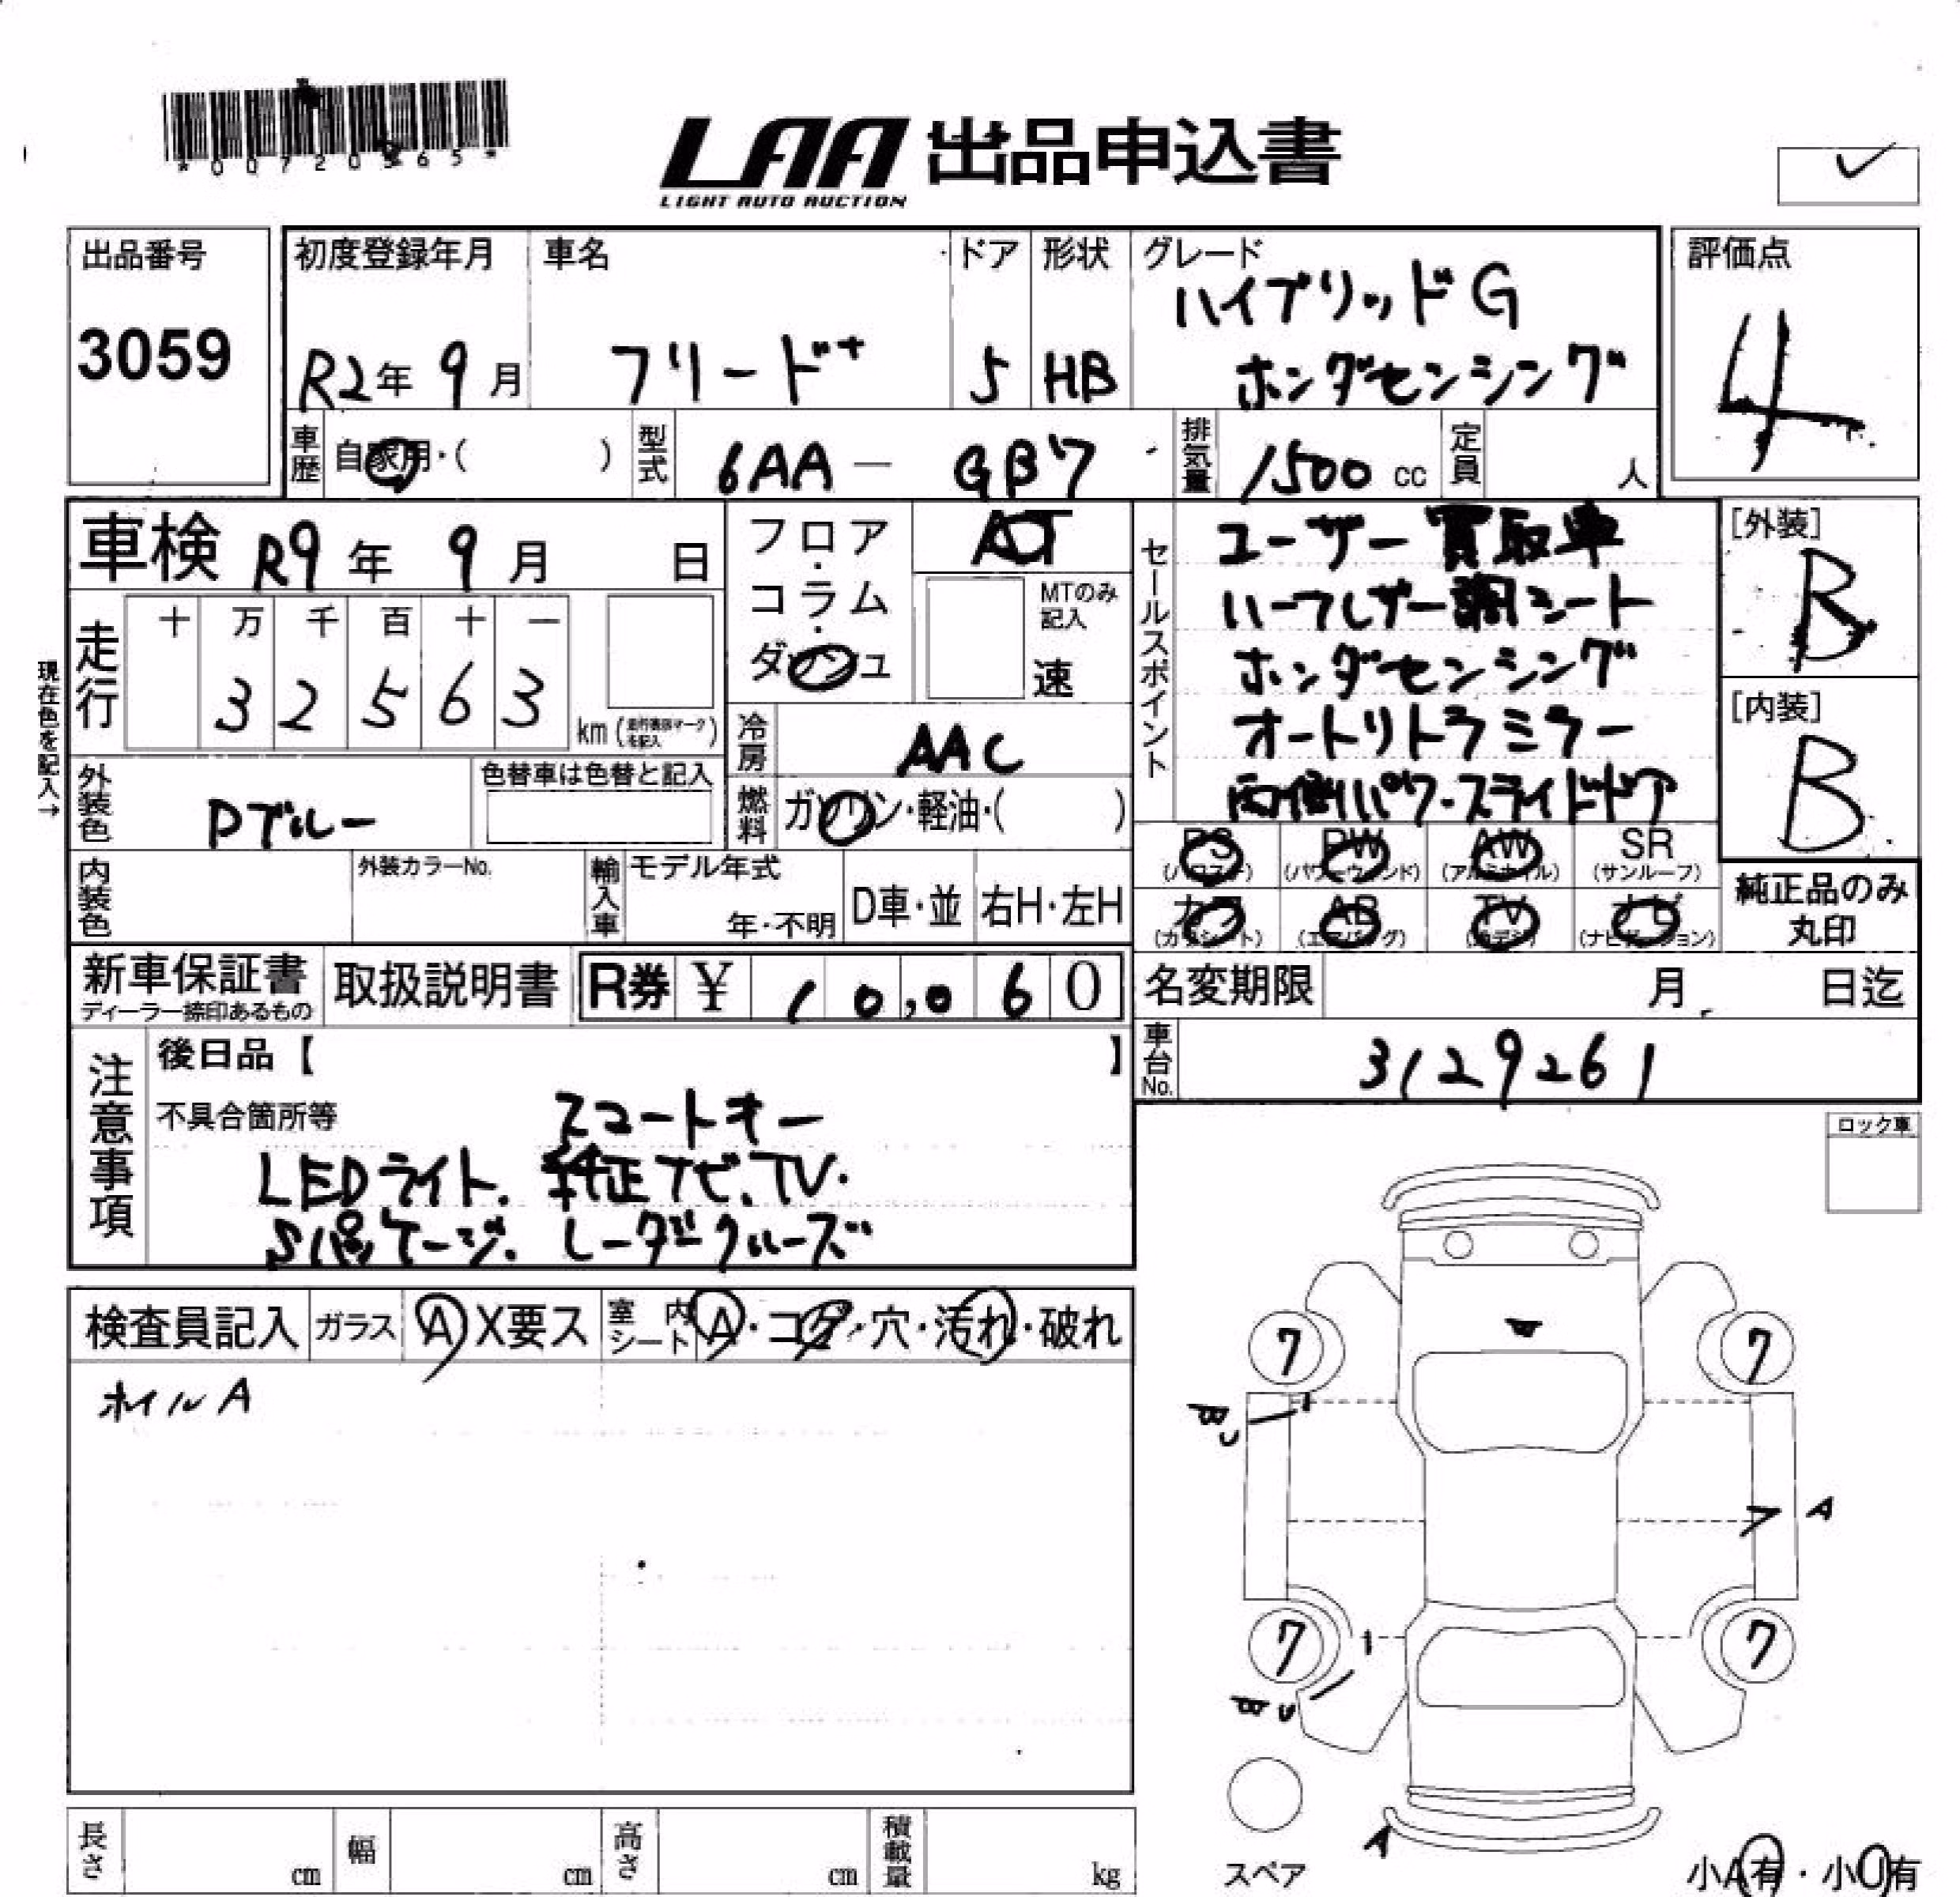 *00720565*
LAA 出品申込書
LIGHT AUTO AUCTION
出品番号
3059
初度登録年月
R2年 9月
車名
フリード+
ドア
5
形状
HB
グレード
ハイブリッドG
ホンダセンシング
評価点
4
車歴 自家用・( )
型式 6AA — GB7
排気量 1500 cc
定員 人
車検 R9年 9月 日
走行 十 万 千 百 十 一
3 2 5 6 3 km
現在色を記入→
フロア・コラム・ダッシュ
AT
MTのみ記入
速
冷房 AAC
燃料 ガソリン・軽油・( )
外装色 Pブルー
色替車は色替と記入
内装色
外装カラーNo.
輸入車 モデル年式
年・不明
D車・並
右H・左H
セールスポイント
ユーザー買取車
ハーフレザー調シート
ホンダセンシング
オートリトラミラー
両側パワースライドドア
[外装]
B
[内装]
B
PS PW AW SR
(パワステ) (パワーウィンド) (アルミホイル) (サンルーフ)
カワ AB TV ナビ
(カワシート) (エアバッグ) (ナビゲーション)
純正品のみ
丸印
新車保証書
ディーラー捺印あるもの
取扱説明書
R券 ¥ 10,060
名変期限 月 日迄
車台No. 3129261
注意事項
後日品【 】
不具合箇所等
スマートキー
LEDライト. 純正ナビ、TV.
Sパッケージ. レーダークルーズ
ロック車
検査員記入
ガラス A X要ス
室内シート A・コゲ・穴・汚れ・破れ
ホイルA
7
7
A
7
7
A
スペア
小A有・小U有
長さ cm
幅 cm
高さ cm
積載量 kg